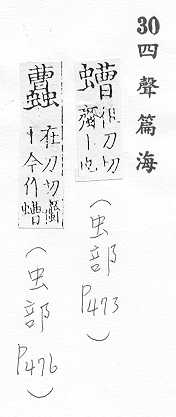 30四聲篇海
螬 徂刀切 齏〡也
(虫部P473)
在刀切 齏
〡今作螬
(虫部P476)